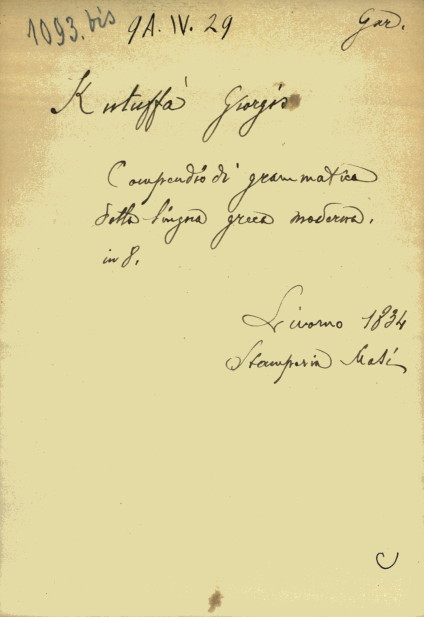 1093.bis 9A.IV.29 Gar.
Kutuffà Giorgio
Compendio di grammatica
della lingua greca moderna.
in 8.
Livorno 1834
Stamperia Masi